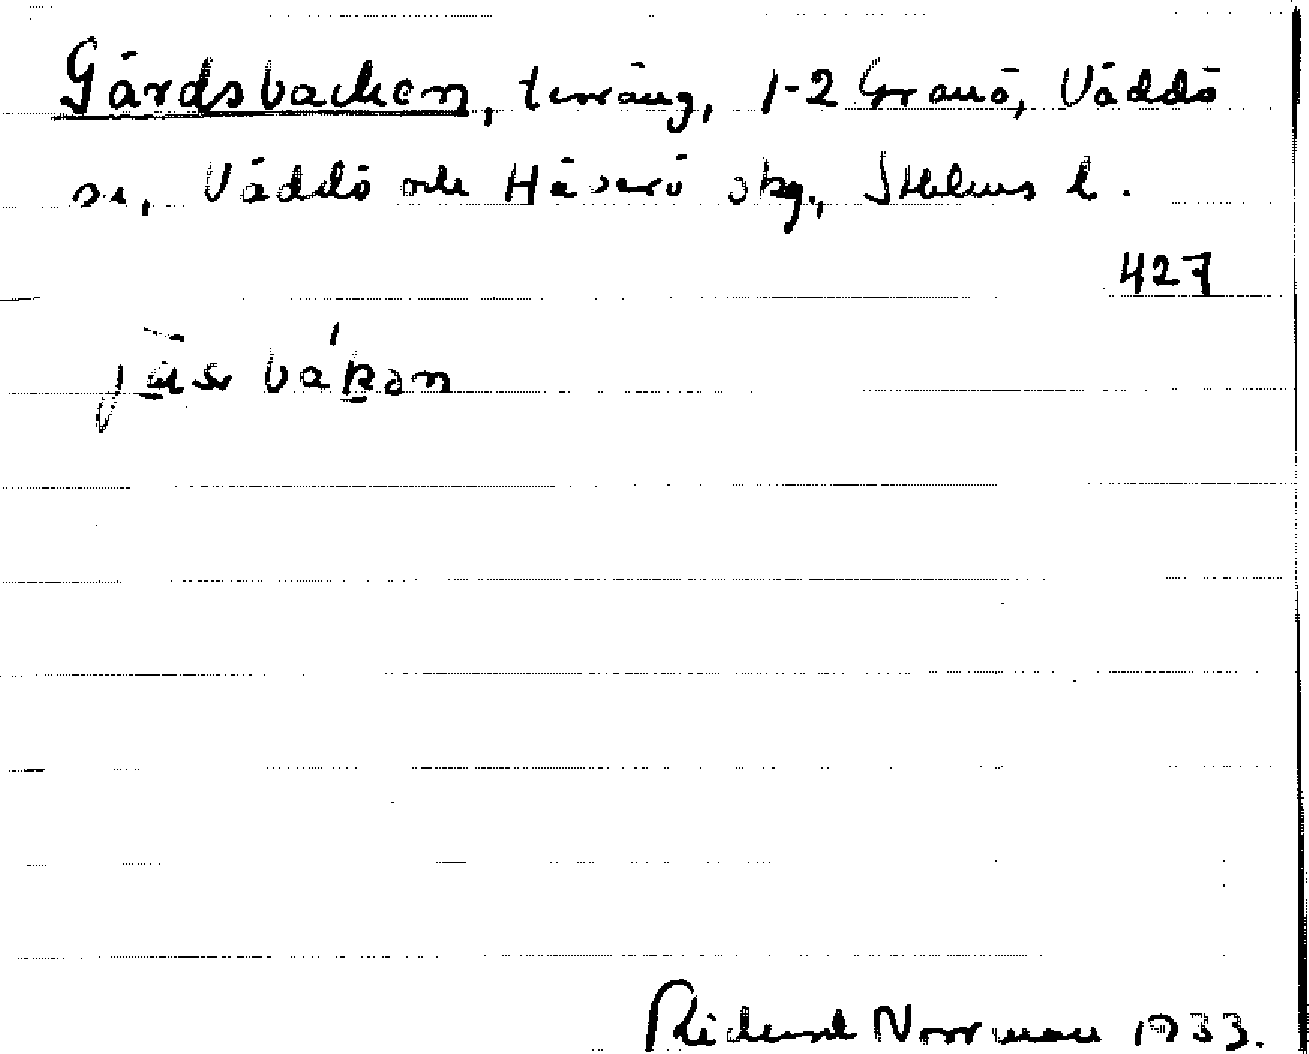 Gärdsbacken, terräng, 1-2 Granö, Väddö
sn, Väddö och Häverö skg., Sthlms l.
427
Richard Norrman 1933.